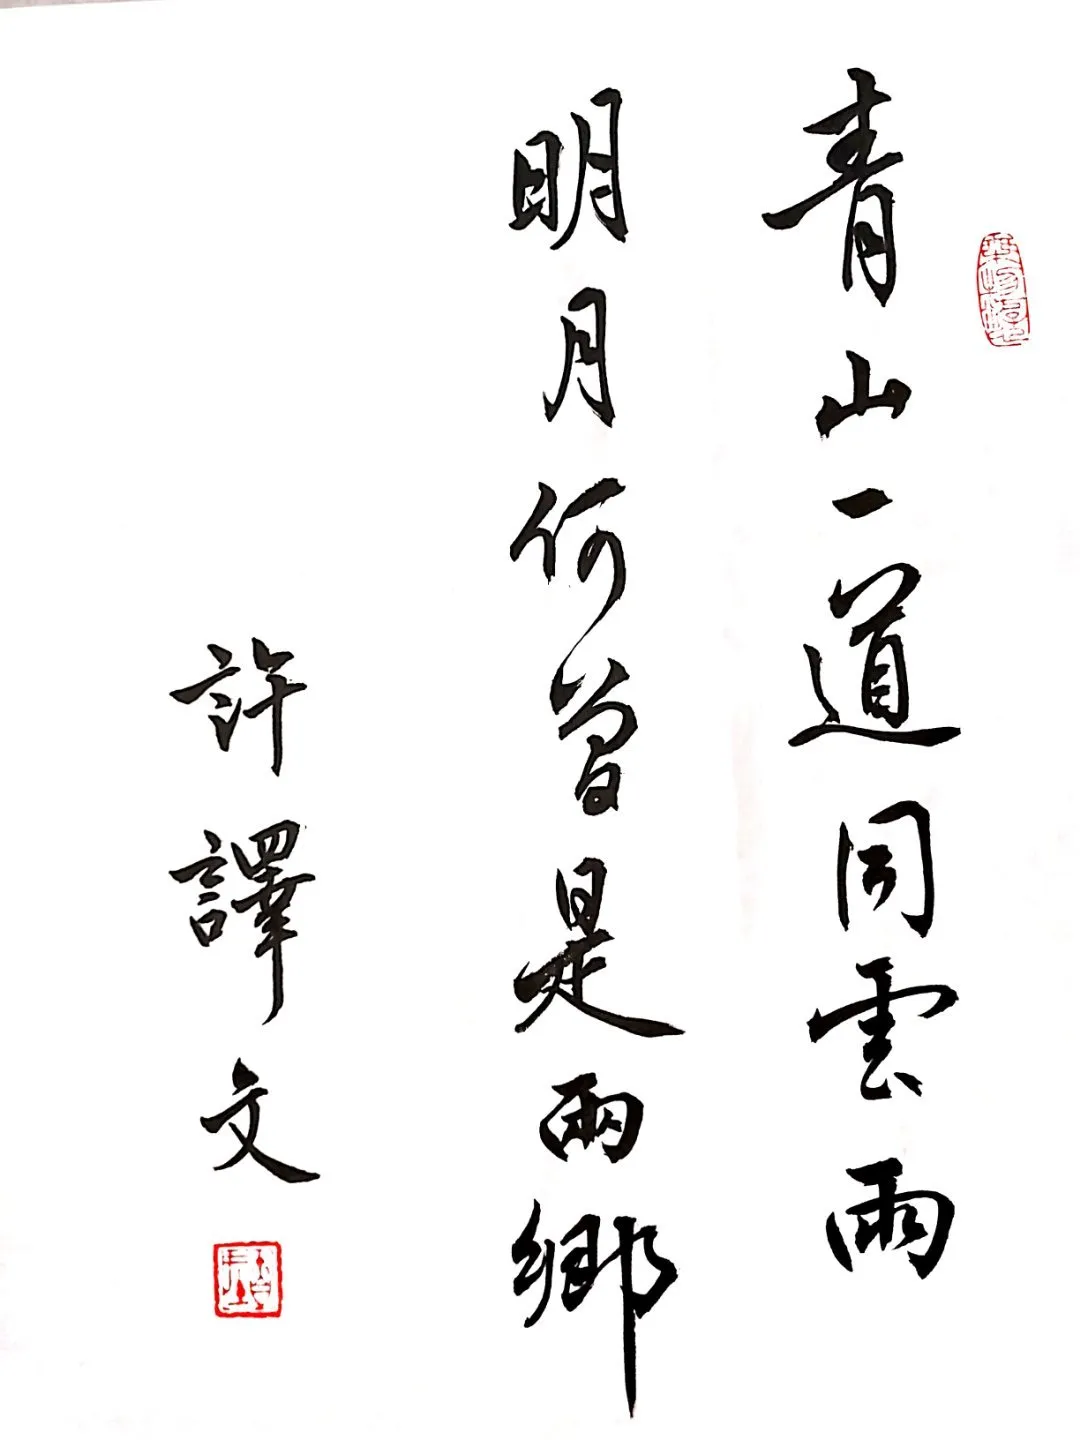 青山一道同雲雨
明月何曾是兩鄉
許譯文